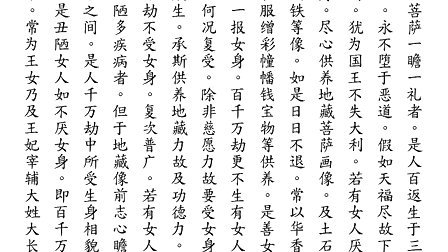 菩萨一瞻一礼者。是人百返生于三
。永不堕于恶道。假如天福尽故下
。犹为国王不失大利。若有女人厌
。尽心供养地藏菩萨画像。及土石
铁等像。如是日日不退。常以华香
服缯彩幢幡钱宝物等供养。是善女
一报女身。百千万劫更不生有女人
何况复受。除非慈愿力故要受女身
生。承斯供养地藏力故及功德力。
劫不受女身。复次普广。若有女人
陋多疾病者。但于地藏像前志心瞻
之间。是人千万劫中所受生身相貌
是丑陋女人如不厌女身。即百千万
。常为王女乃及王妃宰辅大姓大长